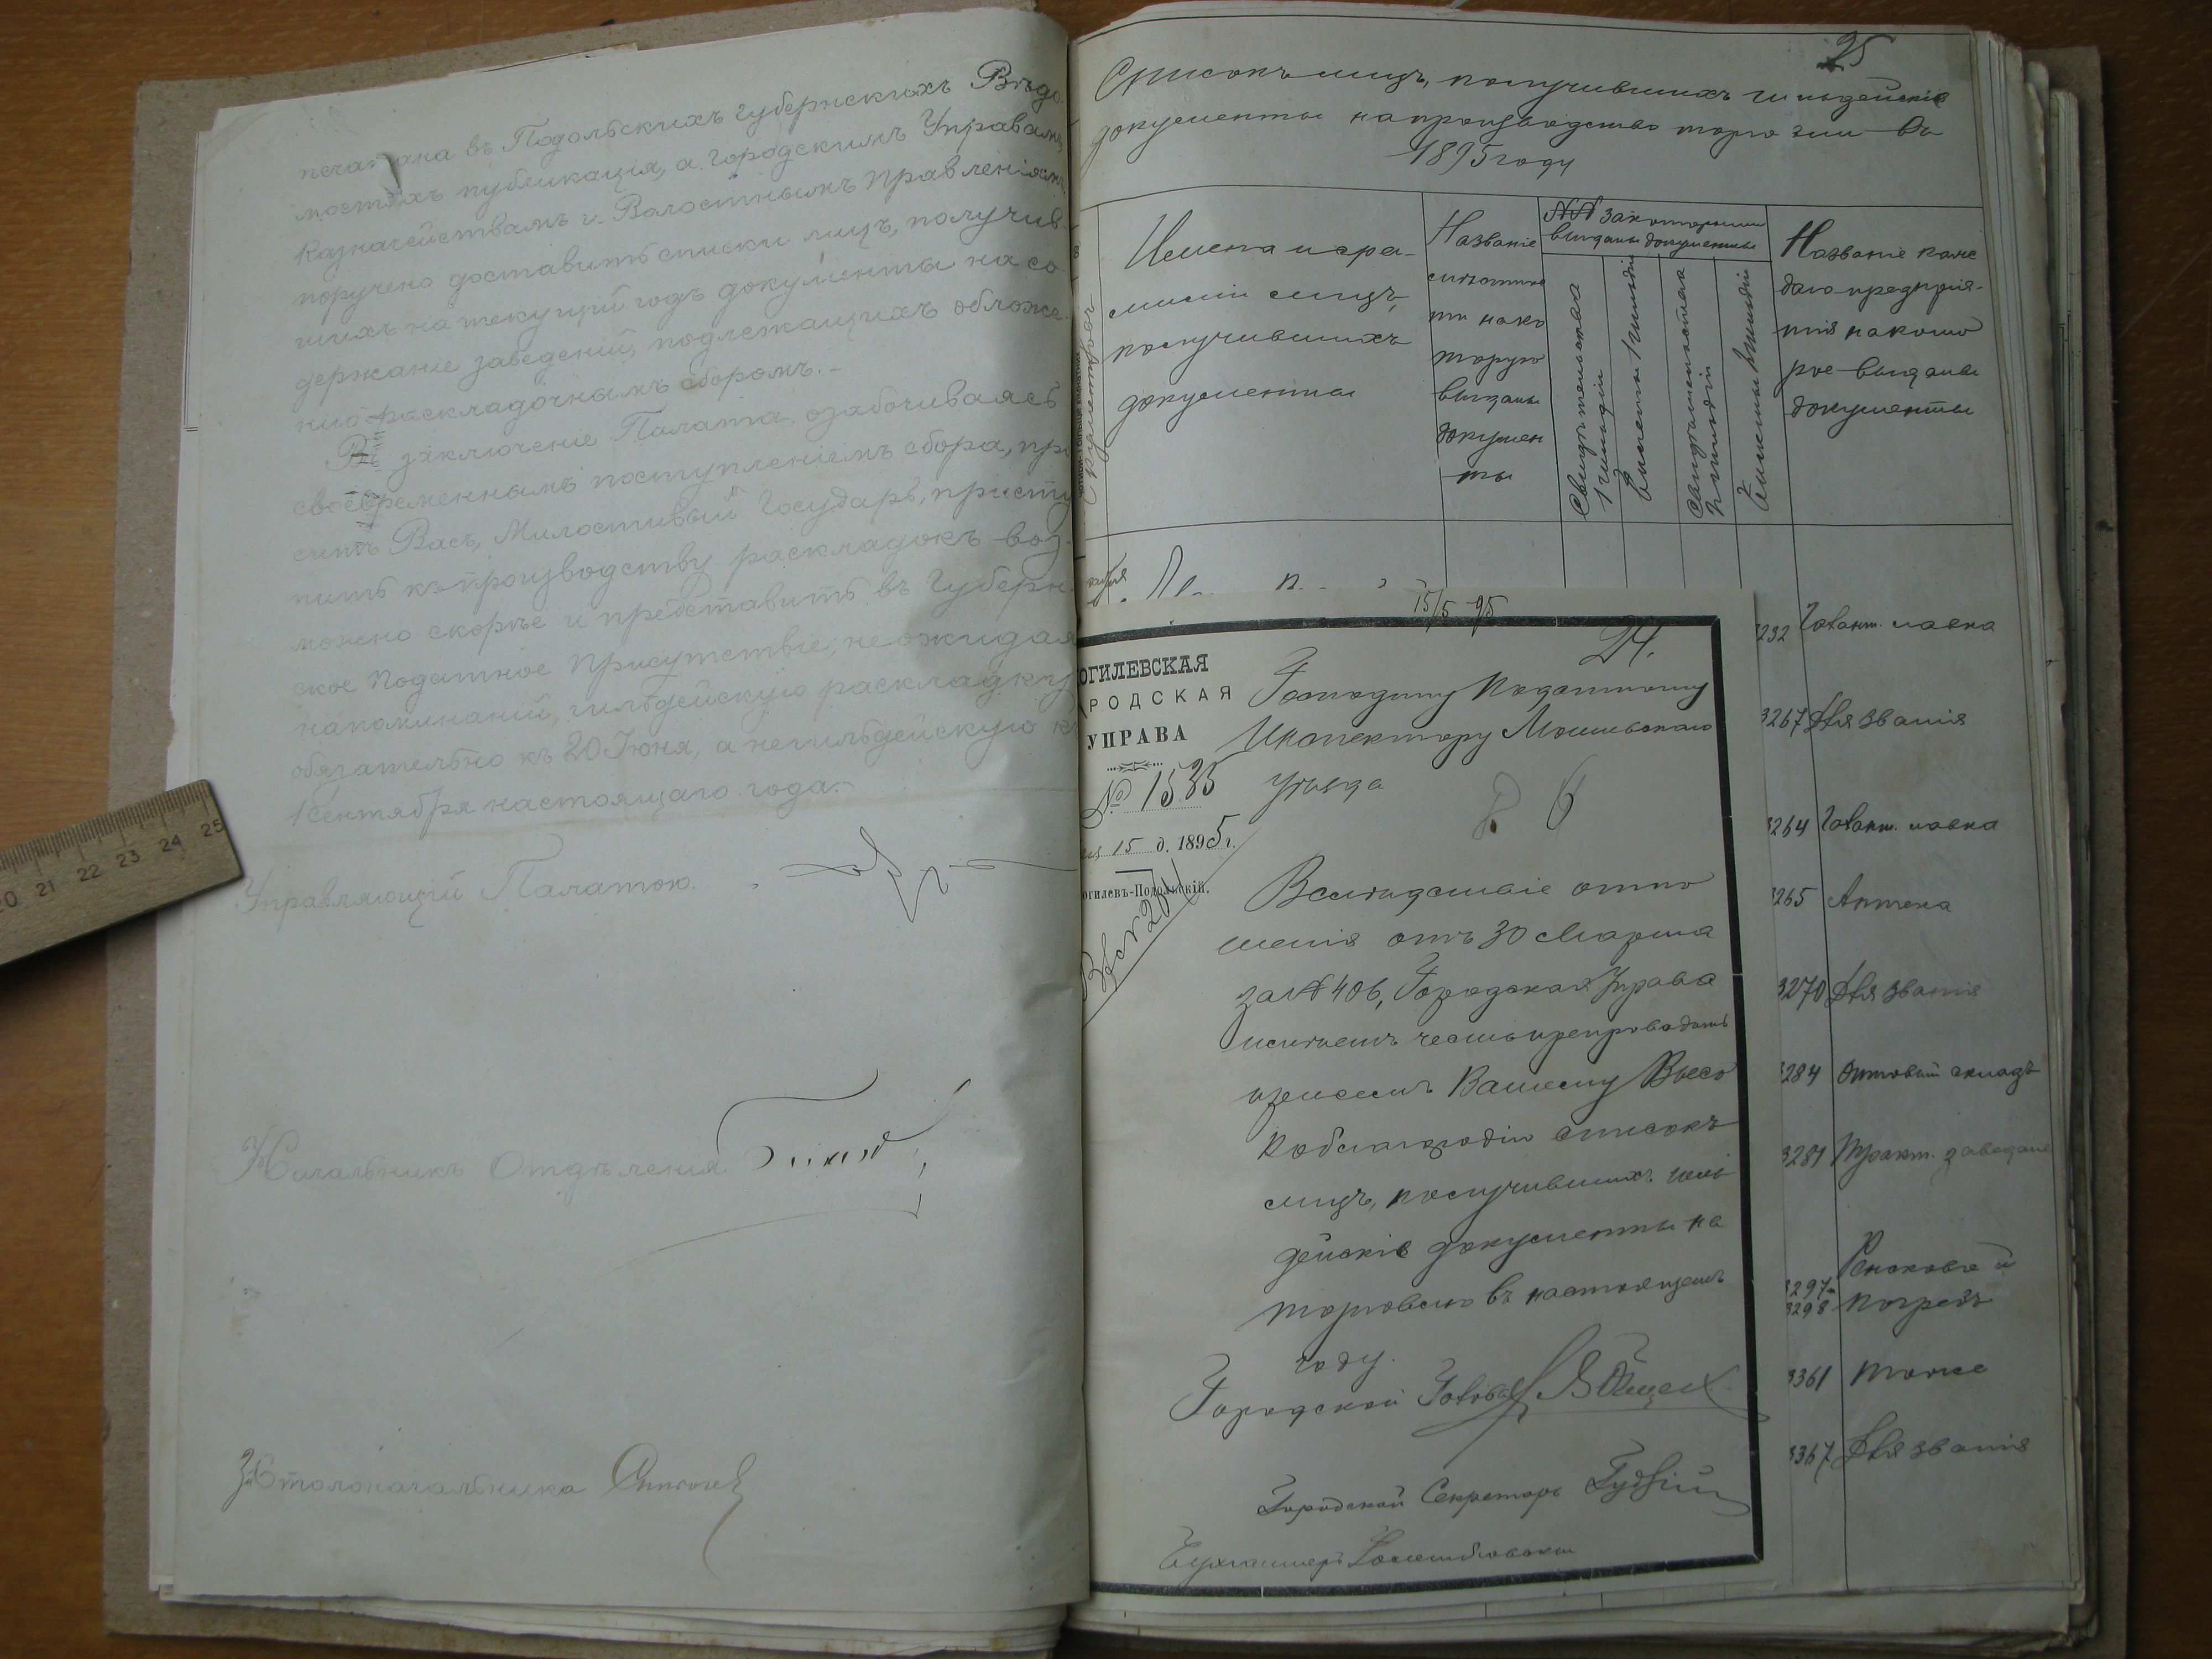 печатана въ Подольскихъ Губернскихъ Вѣдо-
мостяхъ публикація, а Городскимъ Управамъ,
Казначействамъ и Волостнымъ Правленіямъ
поручено доставить списки лицъ, получив-
шихъ на текущій годъ документы на со-
держаніе заведеній, подлежащихъ обложе-
нію раскладочнымъ сборомъ.-
Въ заключеніе Палата, озабочиваясь
своевременнымъ поступленіемъ сбора, про
ситъ Васъ, Милостивый Государь, присту
пить къ производству раскладокъ воз-
можно скорѣе и представить въ Губерн-
ское Податное Присутствіе, не ожидая
напоминаній, гильдейскую раскладку
обязательно къ 20 Іюня, а негильдейскую къ
1 Сентября настоящаго года.-
Управляющій Палатою
Начальникъ Отдѣленія
За Столоначальника
20 21 22 23 24 25
25
Списокъ лицъ, получившихъ гильдейскіе
документы на производство торговли въ
1895 году
Имена и фа-
миліи лицъ,
получившихъ
документы
Названіе
мѣстнос
ти на ко
торую
выданы
докумен
ты
№№ за которыми
выданы документы
Свидѣтельства
1 гильдіи
Билеты 1 гильдіи
Свидѣтельства
2 гильдіи
Билеты 2 гильдіи
Названіе каж
даго предпрія-
тія на кото
рое выданы
документы
3232 Галант. лавка
3267 Для званія
3264 Галант. лавка
3265 Аптека
3270 Для званія
3284 Оптовый складъ
3281 Тракт. заведеніе
3297- Ренсковый
3298 погребъ
3361 тоже
3367 Для званія
15/5 95
24.
ОГИЛЕВСКАЯ
РОДСКАЯ
УПРАВА
№ 1535
15 д. 1895 г.
огилевъ-Подольскій.
Господину Податному
Инспектору Могилевскаго
уѣзда
Вслѣдствіе отно
шенія отъ 30 Марта
за № 406, Городская Управа
имѣетъ честь препроводить
при семъ Вашему Высо
коблагородію списокъ
лицъ, получившихъ гиль
дейскіе документы на
торговлю въ настоящемъ
году.
Городской Голова
Городской Секретарь
Бухгалтеръ